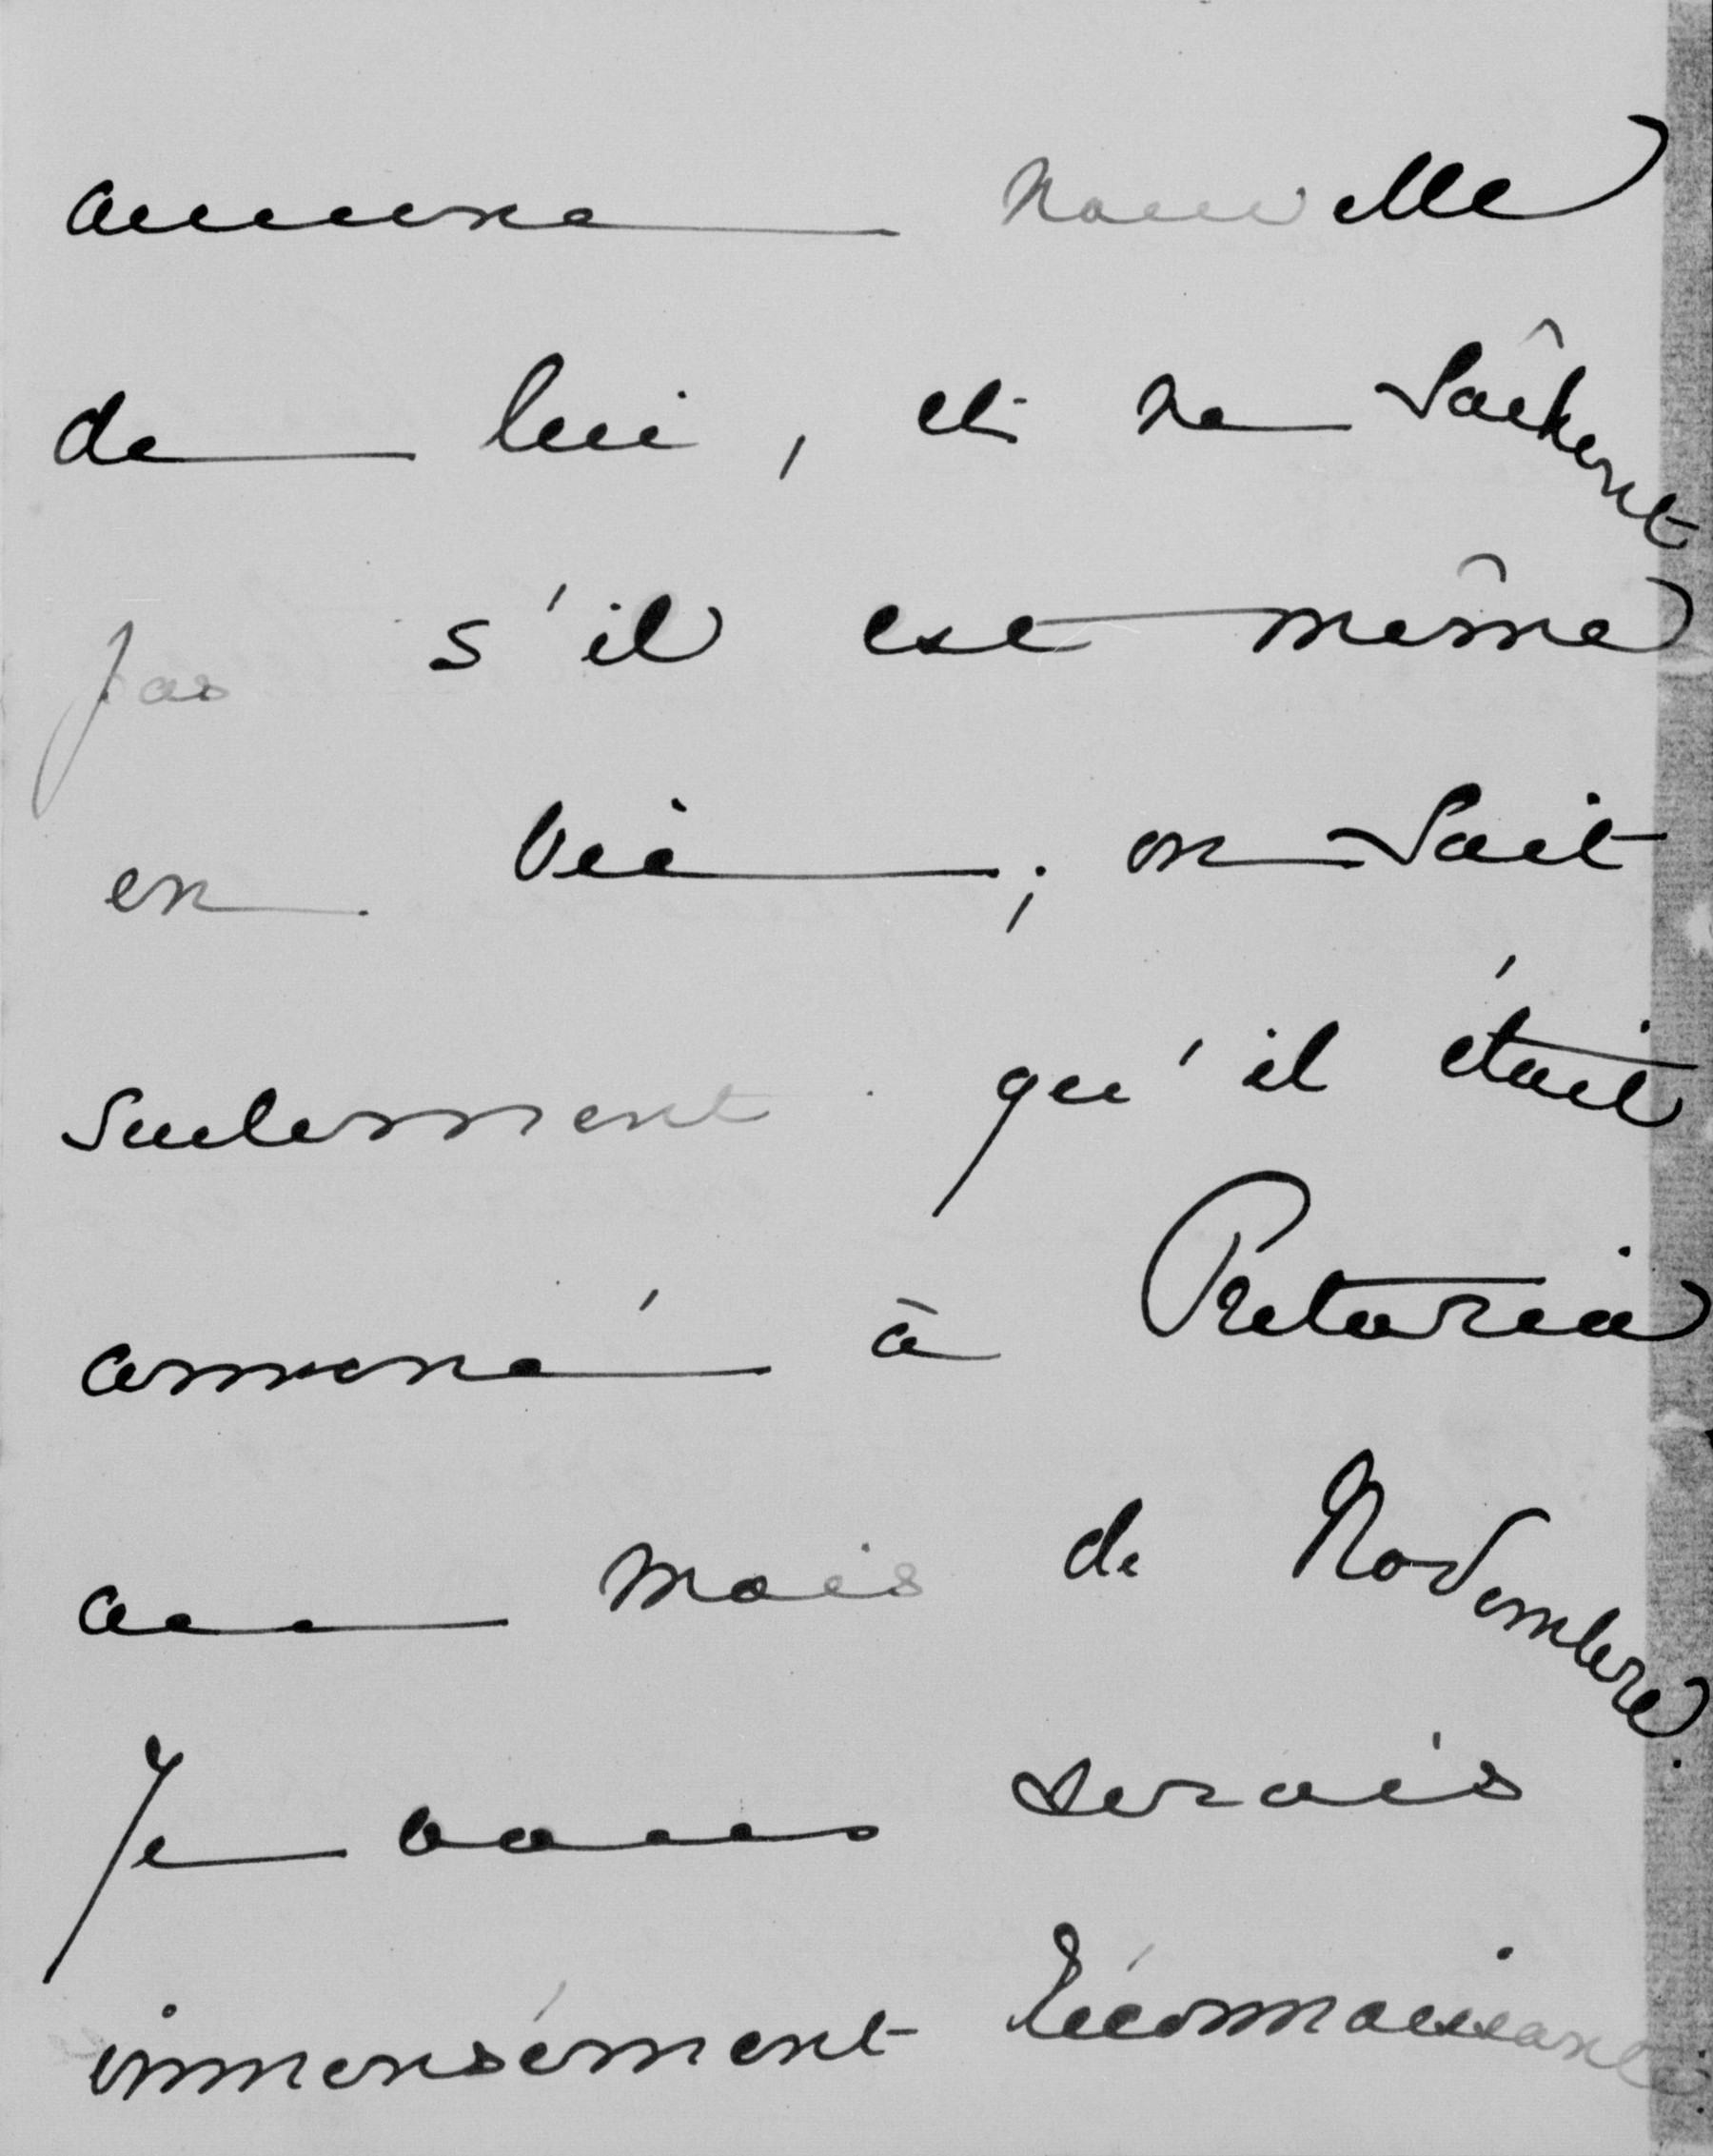 aucune nouvelle
de lui, et ne sachent
pas s'il est même
en vie ; on sait
seulement qu'il était
amené à Pretoria
au mois de Novembre.
Je vous serais
immensément réconnaissante.